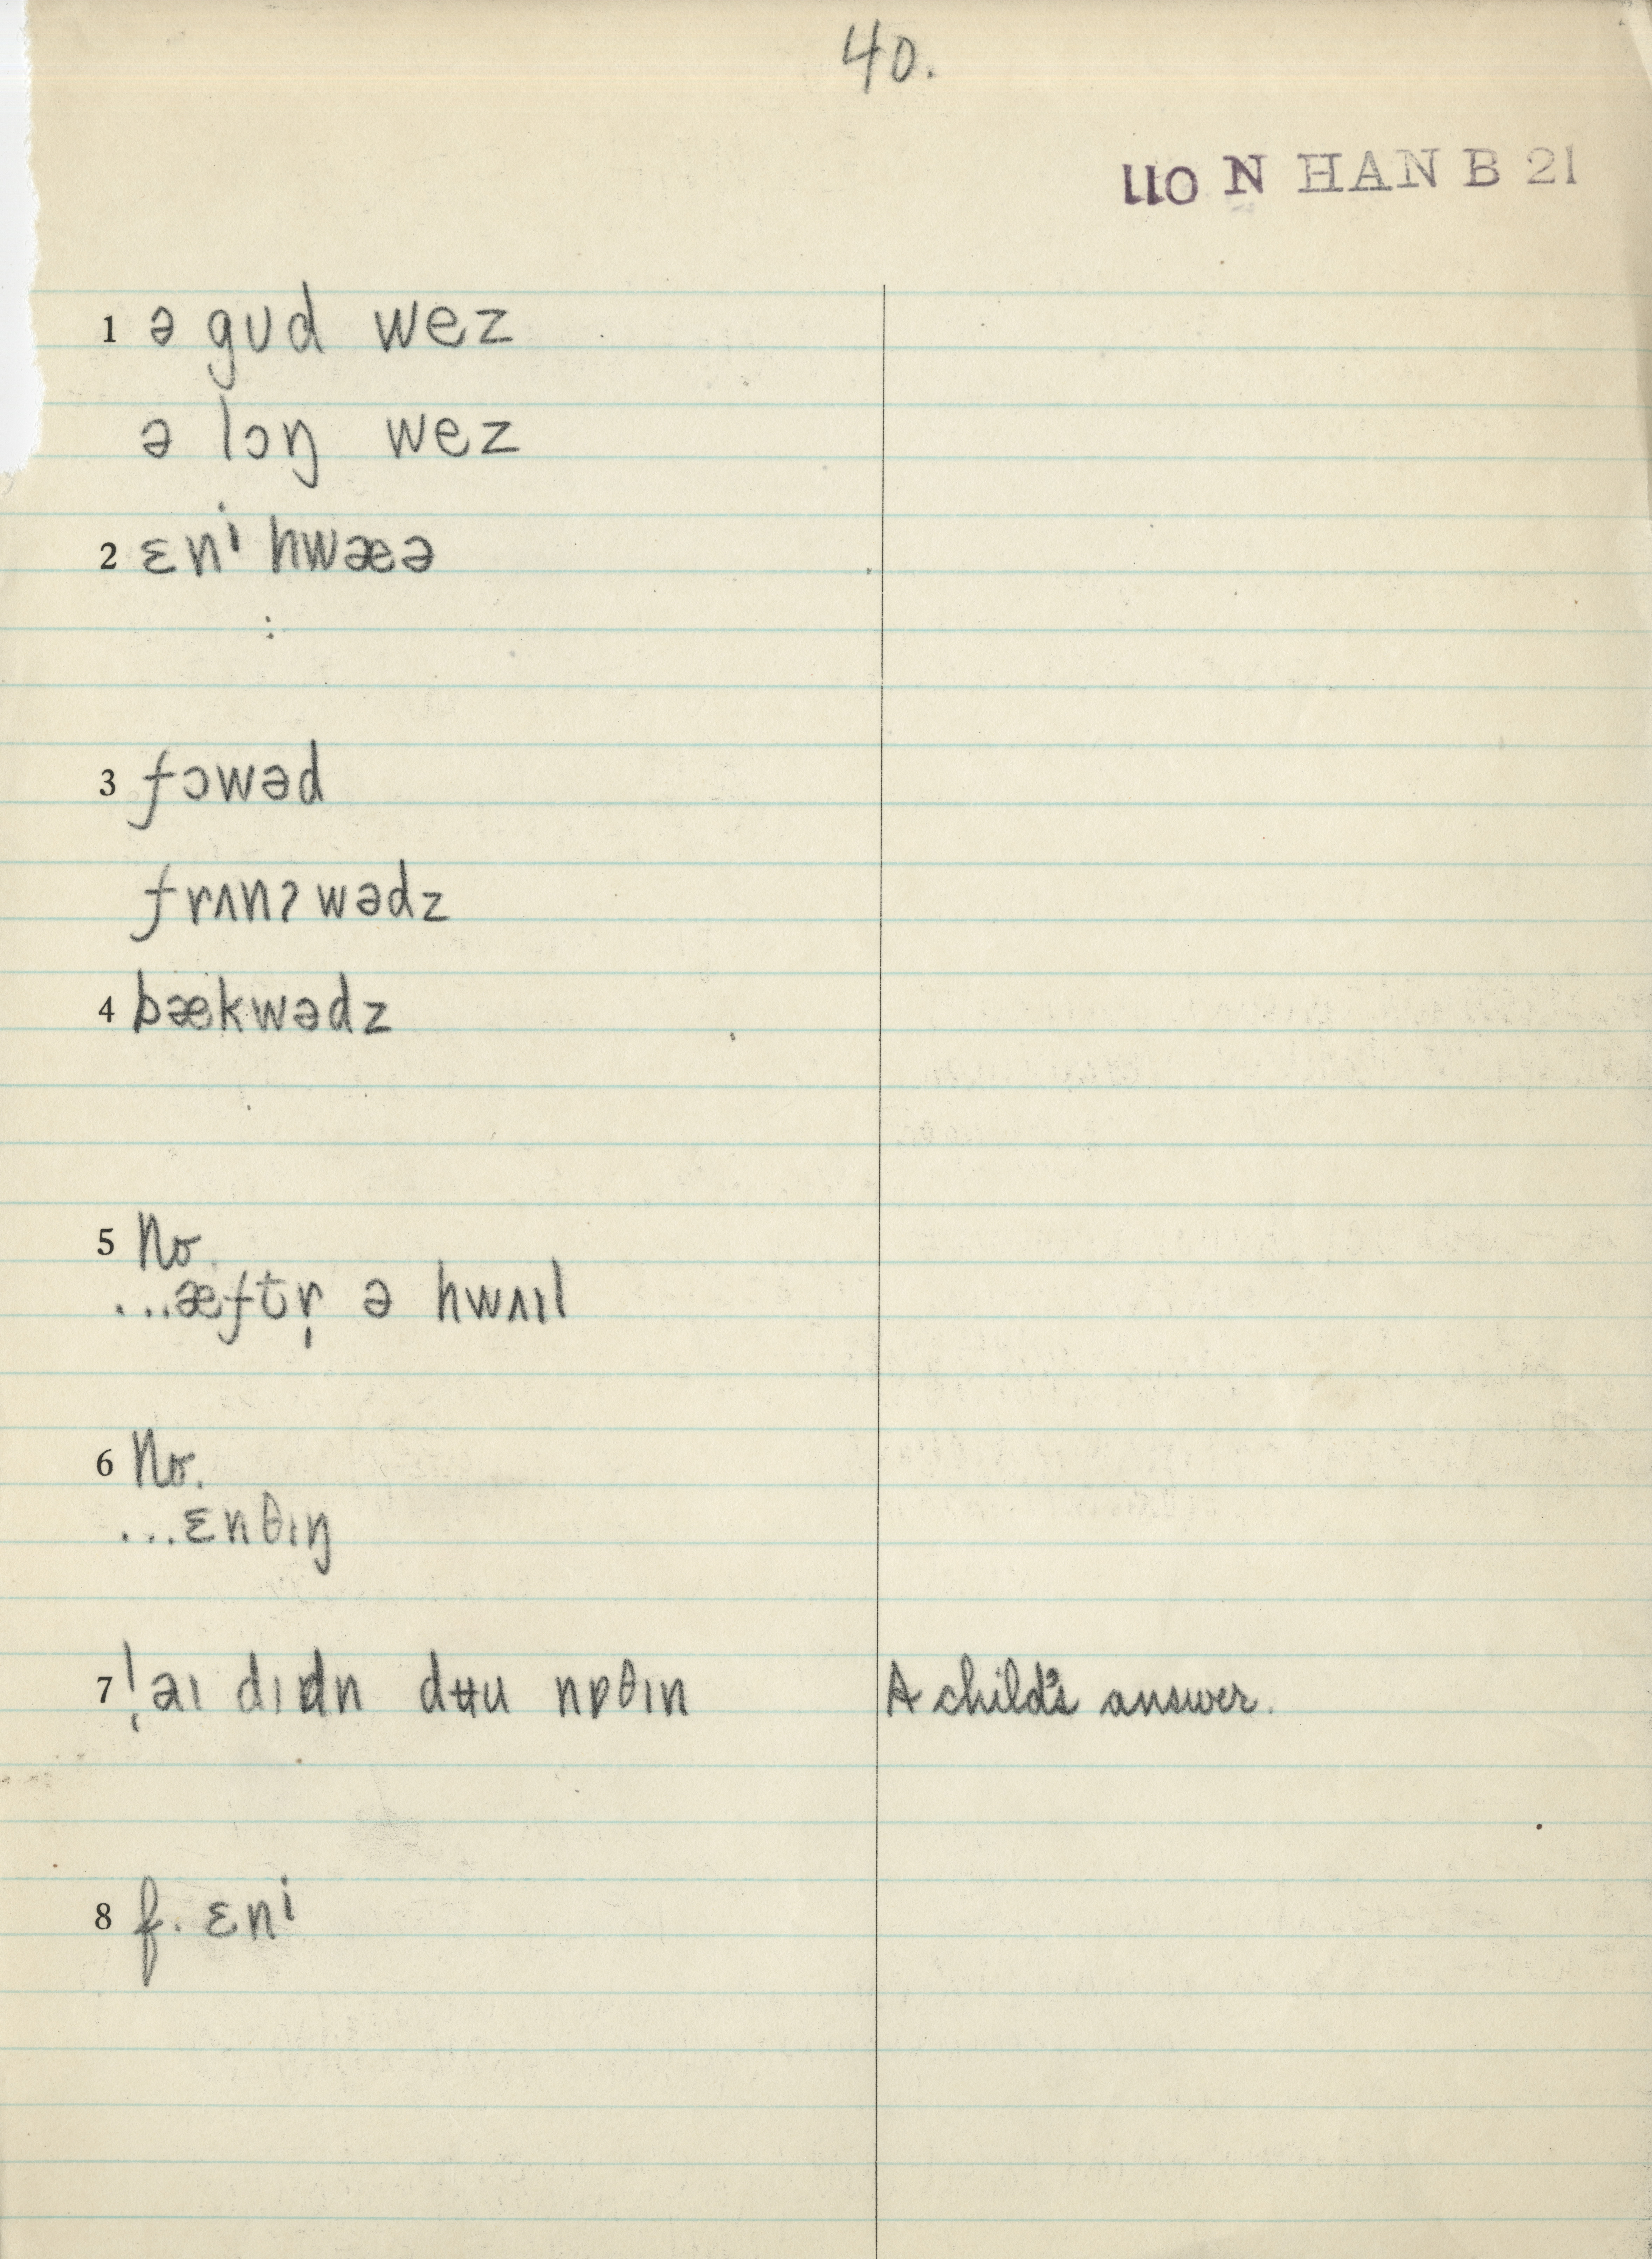 40.
LLO N HAN B 21
1 ə gʊd wez
ə lɔŋ wez
2 ɛnⁱ hwæə
3 fɔwəd
frʌnʔwədz
4 bækwədz
5 No.
...æftr̩ ə hwʌɪl
6 No.
...ɛnθɪŋ
7 !aɪ dɪdn dʉu nɒθɪn A child's answer.
8 f. ɛnⁱ